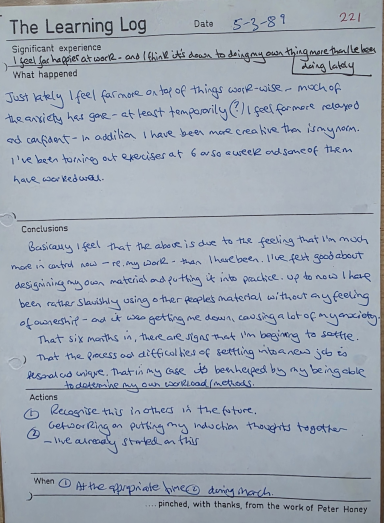 The Learning Log Date 5-3-89 221
Significant experience
I feel far happier at work - and I think it's down to doing my own thing more than I've been
doing lately
What happened
Just lately I feel far more on top of things work-wise - much of
the anxiety has gone - at least temporarily (?) I feel far more relaxed
and confident - in addition I have been more creative than is my norm.
I've been turning out exercises at 6 or so a week and some of them
have worked well.
Conclusions
Basically I feel that the above is due to the feeling that I'm much
more in control now - re. my work - than I have been. I've felt good about
designining my own material and putting it into practice. Up to now I have
been rather slavishly using other people's material without any feeling
of ownership - and it was getting me down, causing a lot of my anxiety.
That six months in, there are signs that I'm beginning to settle.
That the process and difficulties of settling into a new job is
personal and unique. That in my case its been helped by my being able
to determine my own workload/methods.
Actions
① Recognise this in others in the future.
② Get working on putting my induction thoughts together
- I've already started on this
When ① At the appropriate time ② during march.
....pinched, with thanks, from the work of Peter Honey